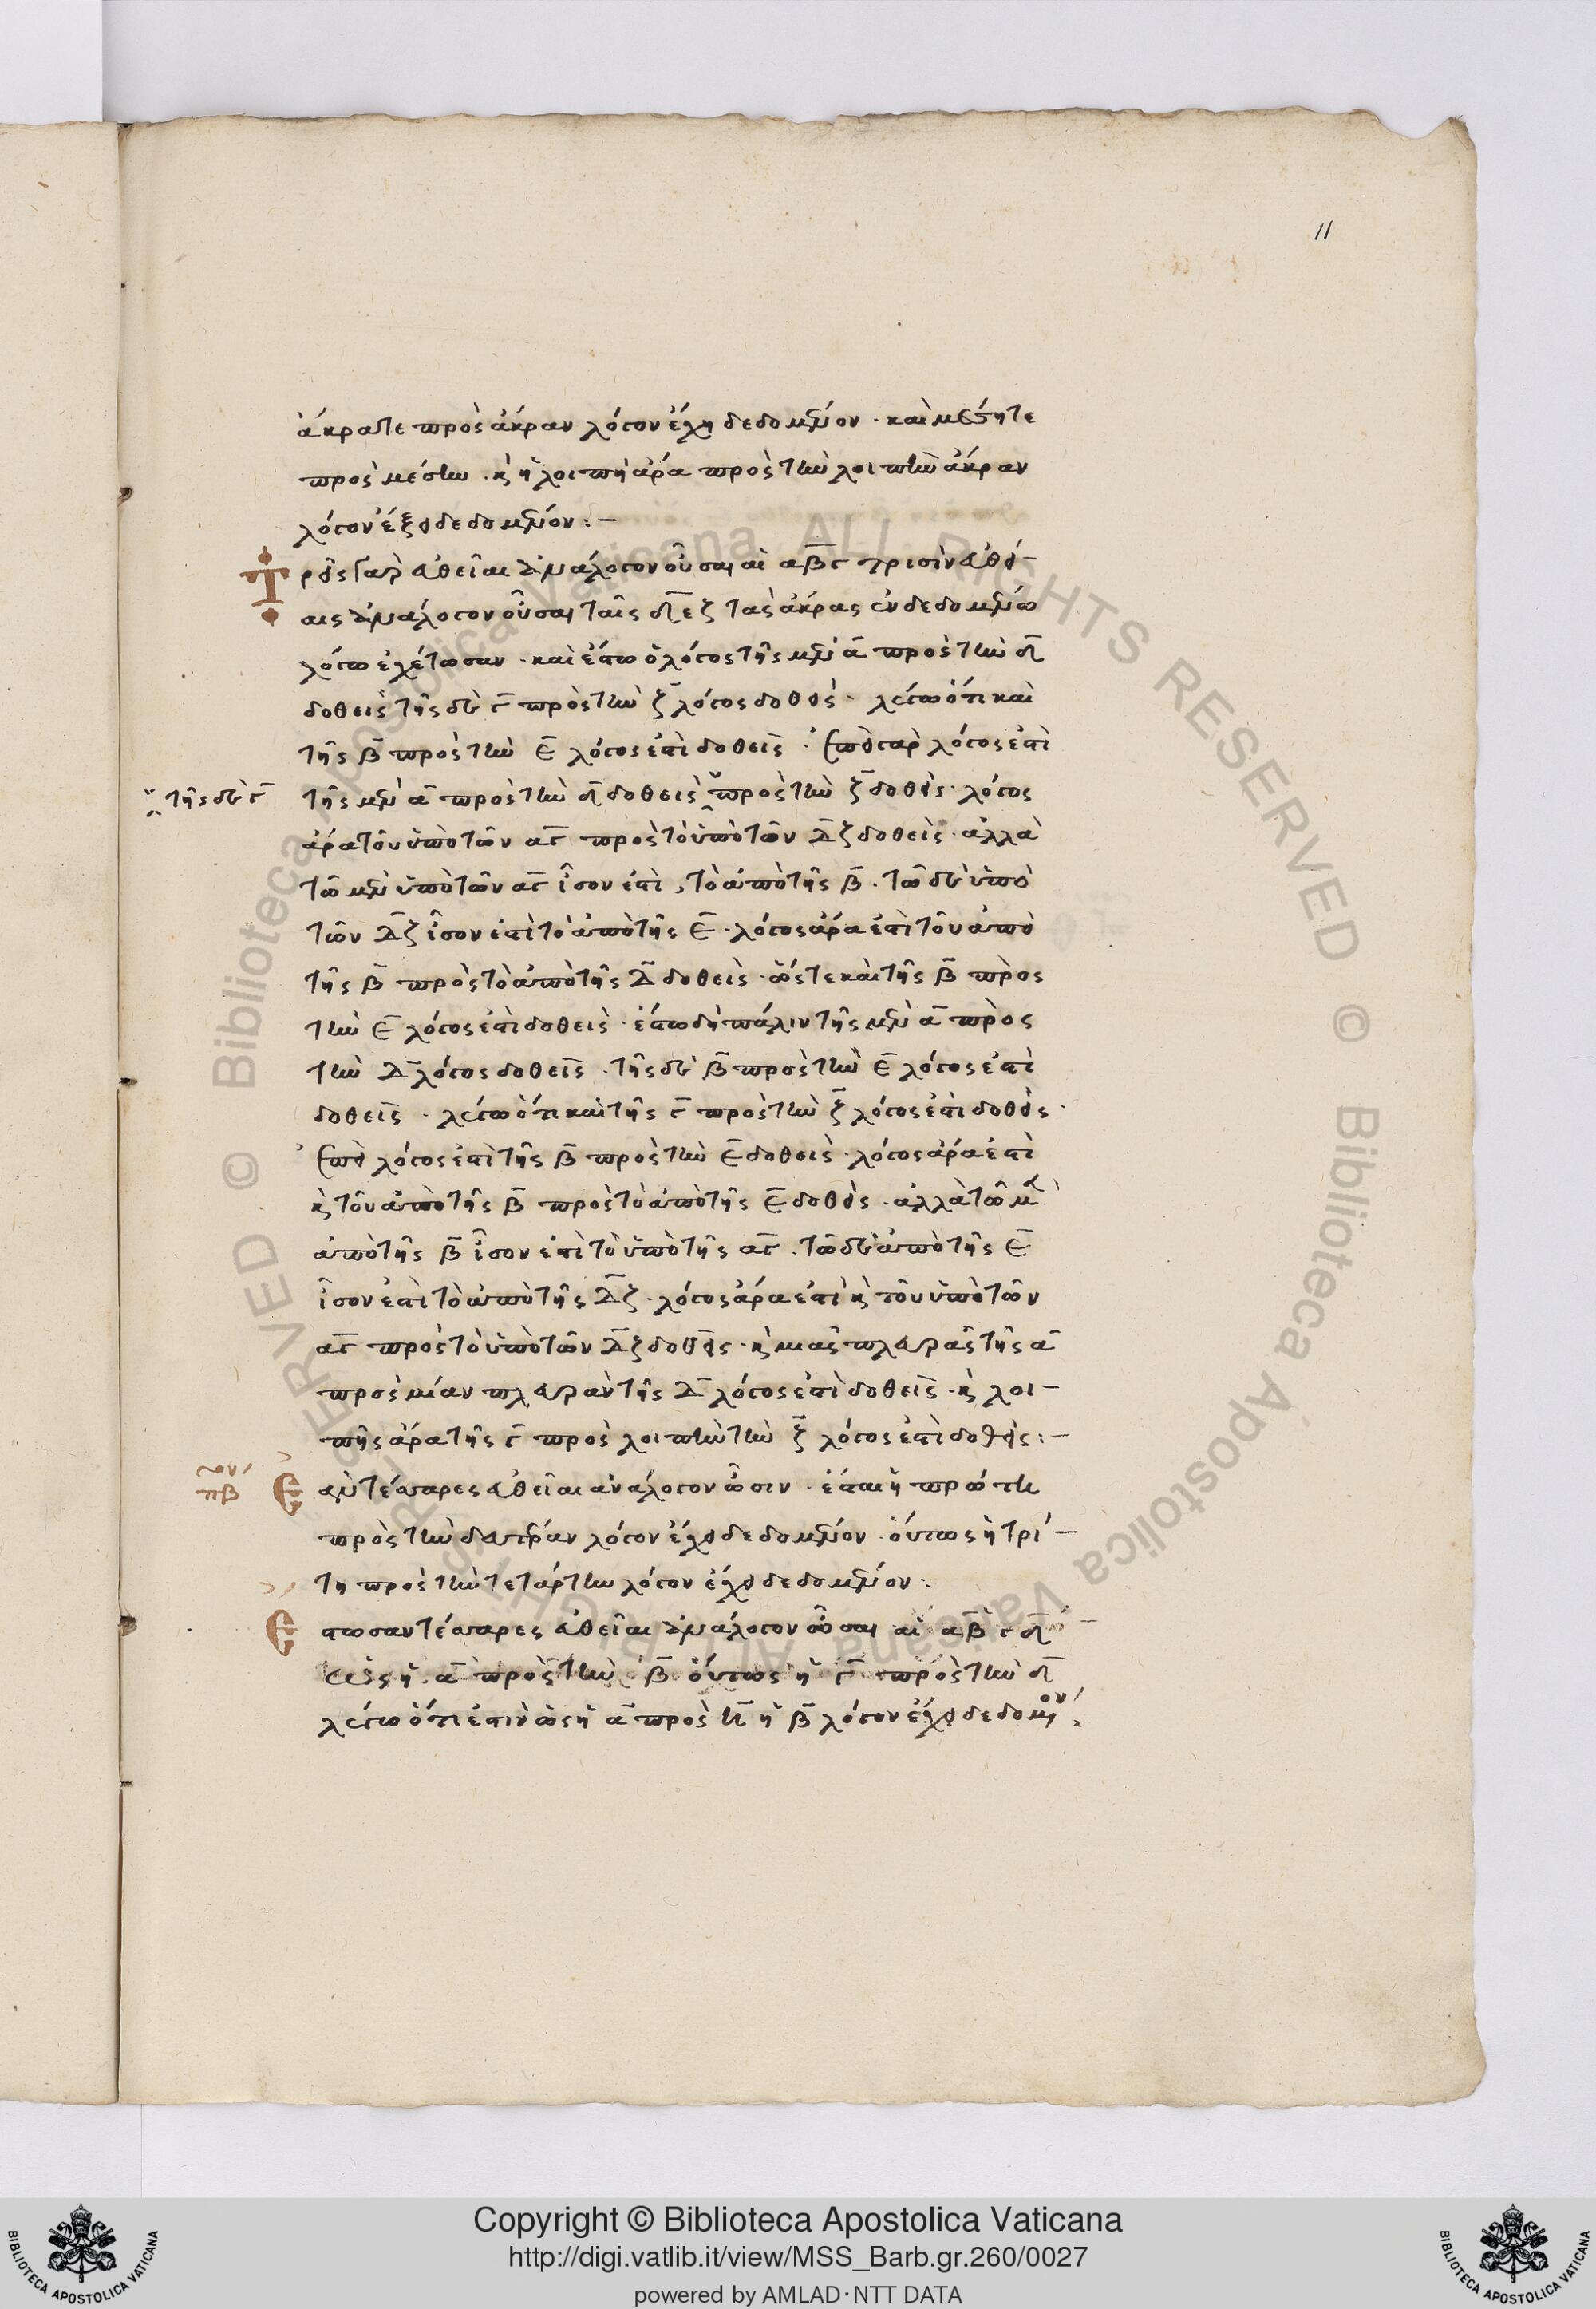 11
ἄκρα τε πρὸς ἄκραν λόγον ἔχη δεδομένον · καὶ μέση τε
πρὸς μέσην · κ̀ ἡ λοιπὴ ἄρα πρὸς τὴν λοιπὴν ἄκραν
λόγον ἕξει δεδομένον :–
Τρεῖς γὰρ εὐθεῖαι ἀνάλογον οὖσαι αἱ α̅β̅γ̅ τρισὶν εὐθεί–
αις ἀνάλογον οὖσαι ταῖς δ̅ε̅ζ̅ τὰς ἄκρας ἐν δεδομένω
λόγω ἐχέτωσαν · καὶ ἔστω ὁ λόγος τῆς μὲν α̅ πρὸς τὴν δ̅
δοθεὶς τῆς δὲ γ̅ πρὸς τὴν ζ̅ λόγος δοθείς · λέγω ὅτι καὶ
τῆς β̅ πρὸς τὴν ε̅ λόγος ἐστὶ δοθεὶς · ἐπεὶ γὰρ λόγος ἐστὶ
τῆς δὲ γ̅
τῆς μὲν α̅ πρὸς τὴν δ̅ δοθεὶς πρὸς τὴν ζ̅ δοθείς · λόγος
ἄρα τοῦ ὑπὸ τῶν α̅γ̅ πρὸς τὸ ὑπὸ τῶν δ̅ζ̅ δοθεὶς · ἀλλὰ
τῶ μὲν ὑπὸ τῶν α̅γ̅ ἶσον ἐστὶ , τὸ ἀπὸ τῆς β̅ . τῶ δὲ ὑπὸ
τῶν δ̅ζ̅ ἶσον ἐστὶ τὸ ἀπὸ τῆς ε̅ · λόγος ἄρα ἐστὶ τοῦ ἀπὸ
τῆς β̅ πρὸς τὸ ἀπὸ τῆς δ̅ δοθεὶς · ὥστε καὶ τῆς β̅ πρὸς
τὴν ε̅ λόγος ἐστὶ δοθεὶς · ἔστω δὴ πάλιν τῆς μὲν α̅ πρὸς
τὴν δ̅ λόγος δοθεὶς · τῆς δὲ β̅ πρὸς τὴν ε̅ λόγος ἐστὶ
δοθεὶς · λέγω ὅτι καὶ τῆς γ̅ πρὸς τὴν ζ̅ λόγος ἐστὶ δοθείς ·
ἐπεὶ λόγος ἐστὶ τῆς β̅ πρὸς τὴν ε̅ δοθεὶς · λόγος ἄρα ἐστὶ
κ̀ τοῦ ἀπὸ τῆς β̅ πρὸς τὸ ἀπὸ τῆς ε̅ δοθείς · ἀλλὰ τῶ μὲν
ἀπὸ τῆς β̅ ἶσον ἐστὶ τὸ ὑπὸ τῆς α̅γ̅ . τῶ δὲ ἀπὸ τῆς ε̅
ἶσον ἐστὶ τὸ ἀπὸ τῆς δ̅ζ̅ · λόγος ἄρα ἐστὶ κ̀ τοῦ ὑπὸ τῶν
α̅γ̅ πρὸς τὸ ὑπὸ τῶν δ̅ζ̅ δοθείς · κ̀ μιᾶς πλευρᾶς τῆς α̅
πρὸς μίαν πλευρὰν τῆς δ̅ λόγος ἐστὶ δοθεὶς · κ̀ λοι–
πῆς ἄρα τῆς γ̅ πρὸς λοιπὴν τὴν ζ̅ λόγος ἐστὶ δοθείς :–
πβ
Ἐὰν τέσσαρες εὐθεῖαι ἀνάλογον ὦσιν · ἔσται ἡ πρώτη
πρὸς τὴν δευτέραν λόγον ἔχει δεδομένον · οὕτως ἡ τρί–
τη πρὸς τὴν τετάρτην λόγον ἔχει δεδομένον :
Ἔστωσαν τέσσαρες εὐθεῖαι ἀνάλογον οὖσαι αἱ α̅β̅γ̅δ̅ –
ὡς ἡ α̅ πρὸς τὴν β̅ οὕτως ἡ γ̅ πρὸς τὴν δ̅
λέγω ὅτι ἐστὶν ὡς ἡ α̅ πρὸς ἣν ἡ β̅ λόγον ἔχει δεδομένον :
Copyright © Biblioteca Apostolica Vaticana
http://digi.vatlib.it/view/MSS_Barb.gr.260/0027
powered by AMLAD·NTT DATA